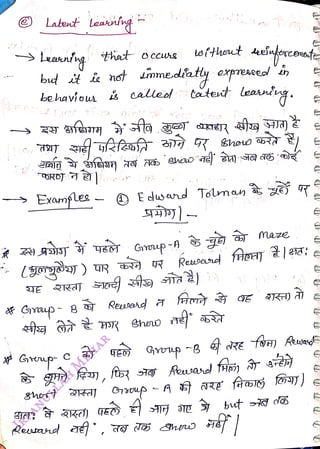 ② Latent Learning :-
→ Learning that occurs without reinforcement
but it is not immediatly expressed in
behaviour is called Latent Learning.
→ इस अधिगम में जीव कुछ व्यवहार सीख जाता है
तथा सही परिस्थिति आने पर show करते हैं।
अर्थात ये अधिगम तब तक show नहीं होता जब तक कोई
कारण न हो।
→ Examples - ① Edward Tolman के चूहों पर
प्रयोग। -
* इस प्रयोग में पहले Group-A के चूहों को Maze
(भूलभुलैया) पार करने पर Reward मिलता है। अतः
यह रास्ता जल्दी सीख जाते है।
* Group-B को Reward न मिलने से वह रास्ता तो
सीख लेते है मगर show नहीं करते
* Group-C को पहले Group-B की तरह बिना Reward
के घूमने दिया, फिर जब Reward मिला तो उन्होंने
short रास्ता Group-A की तरह निकाल लिया।
अतः वे रास्ता पहले ही जान गए थे but जब तक
Reward नहीं, तब तक show नहीं।